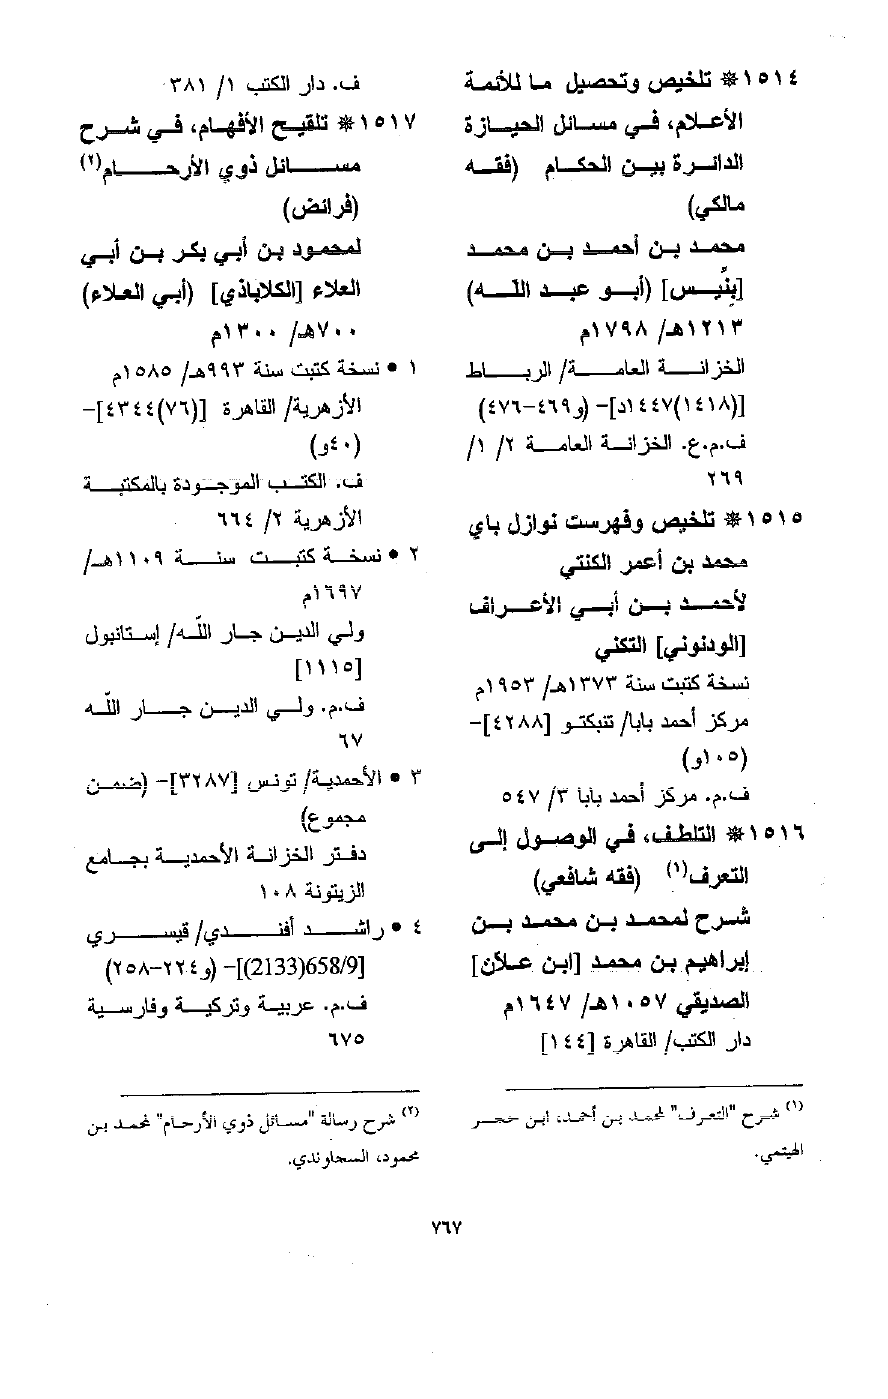 ١٥١٤ ❋ تلخيص وتحصيل ما للأئمة
الأعلام، في مسائل الحيازة
الدائرة بين الحكام (فقه
مالكي)
محمد بن أحمد بن محمد
[بِنِّيس] (أبو عبد الله)
١٢١٣هـ/ ١٧٩٨م
الخزانة العامة/ الرباط
[(١٤١٨)١٤٤٧د]- (و٤٦٩-٤٧٦)
ف.م.ع. الخزانة العامة ٢/ ١/
٢٦٩
١٥١٥ ❋ تلخيص وفهرست نوازل باي
محمد بن أعمر الكنتي
لأحمد بن أبي الأعراف
[الودنوني] التكني
نسخة كتبت سنة ١٣٧٣هـ/ ١٩٥٣م
مركز أحمد بابا/ تنبكتو [٤٢٨٨]-
(١٠٥و)
ف.م. مركز أحمد بابا ٣/ ٥٤٧
١٥١٦ ❋ التلطف، في الوصول إلى
التعرف(١) (فقه شافعي)
شرح لمحمد بن محمد بن
إبراهيم بن محمد [ابن علان]
الصديقي ١٠٥٧هـ/ ١٦٤٧م
دار الكتب/ القاهرة [١٤٤]
(١) شرح "التعرف" لمحمد بن أحمد، ابن حجر
الهيتمي.
ف. دار الكتب ١/ ٣٨١
١٥١٧ ❋ تلقيح الأفهام، في شرح
مسائل ذوي الأرحام(٢)
(فرائض)
لمحمود بن أبي بكر بن أبي
العلاء [الكلاباذي] (أبي العلاء)
٧٠٠هـ/ ١٣٠٠م
١ • نسخة كتبت سنة ٩٩٣هـ/ ١٥٨٥م
الأزهرية/ القاهرة [(٧٦)٤٣٤٤]-
(٤٠و)
ف. الكتب الموجودة بالمكتبة
الأزهرية ٢/ ٦٦٤
٢ • نسخة كتبت سنة ١١٠٩هـ/
١٦٩٧م
ولي الدين جار الله/ إستانبول
[١١١٥]
ف.م. ولي الدين جار الله
٦٧
٣ • الأحمدية/ تونس [٣٢٨٧]- (ضمن
مجموع)
دفتر الخزانة الأحمدية بجامع
الزيتونة ١٠٨
٤ • راشد أفندي/ قيسري
[658/9(2133)]- (و٢٢٤-٢٥٨)
ف.م. عربية وتركية وفارسية
٦٧٥
(٢) شرح رسالة "مسائل ذوي الأرحام" لمحمد بن
محمود، السجاوندي.
٧٦٧